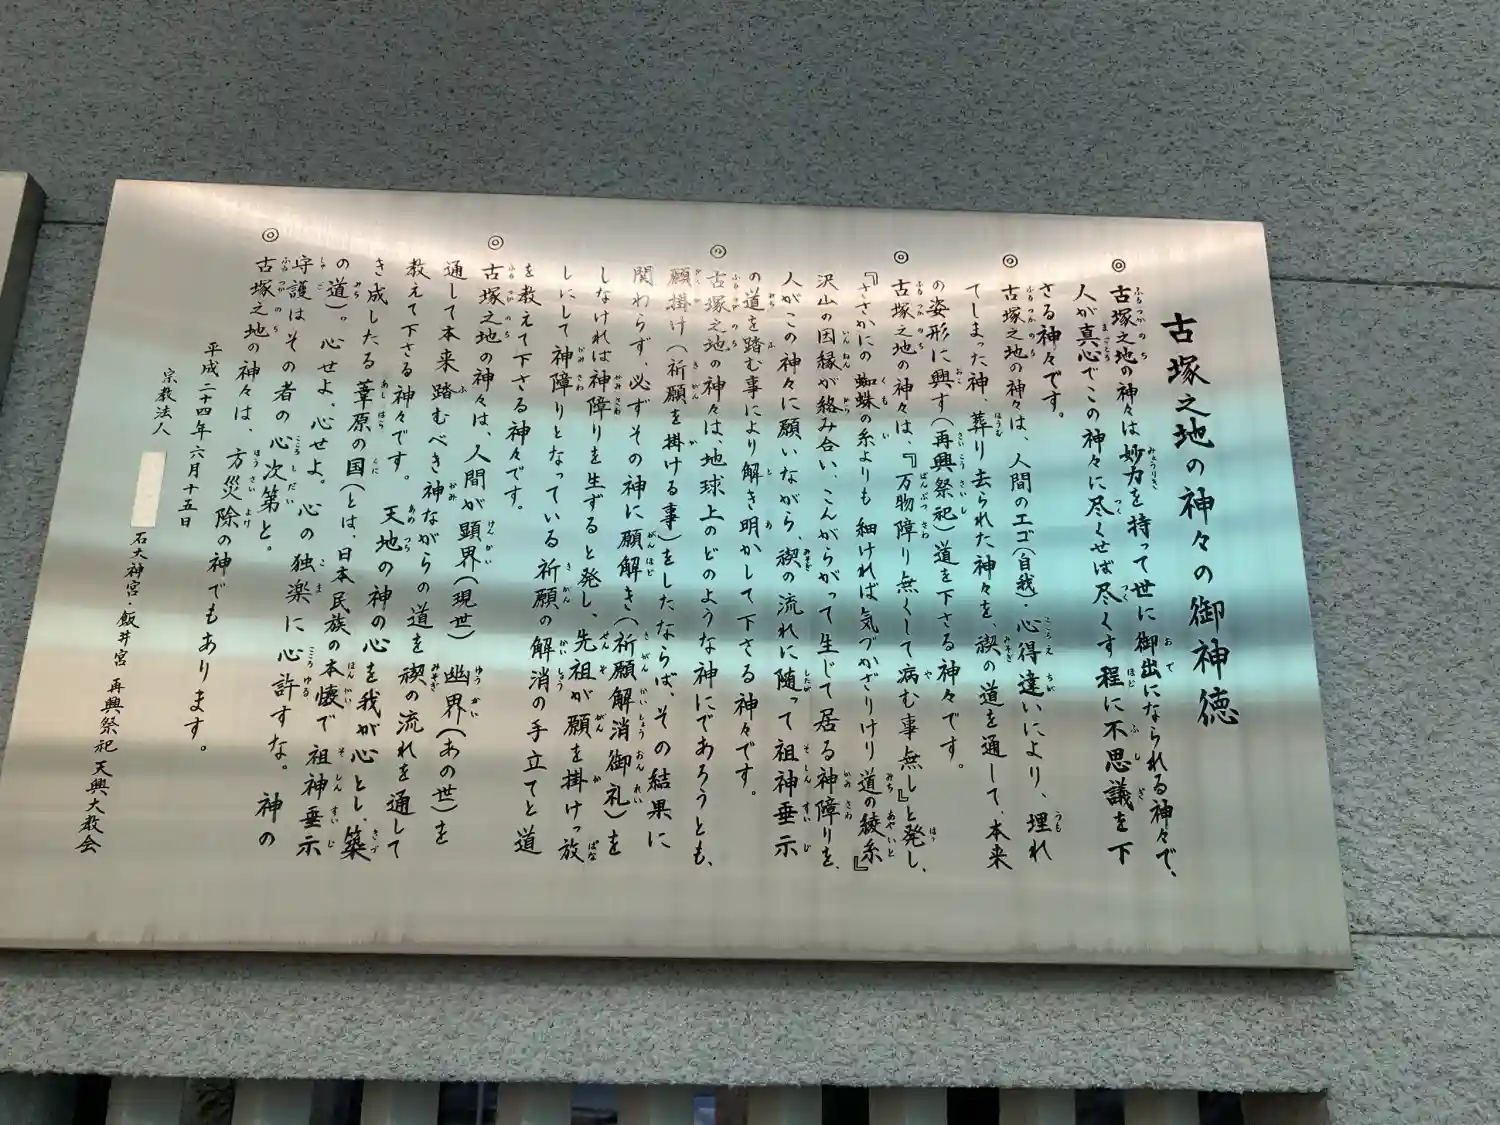 古塚之地の神々の御神徳
◎古塚之地の神々は妙力を持って世に御出になられる神々で、
人が真心でこの神々に尽くせば尽くす程に不思議を下
さる神々です。
◎古塚之地の神々は、人間のエゴ(自我)・心得違いにより、埋れ
てしまった神、葬り去られた神々を、禊の道を通して、本来
の姿形に興す(再興祭祀)道を下さる神々です。
◎古塚之地の神々は、『万物障り無くして病む事無し』と発し、
『ささかにの蜘蛛の糸よりも細ければ気づかざりけり道の綾糸』
沢山の因縁が絡み合い、こんがらがって生じて居る神障りを、
人がこの神々に願いながら、禊の流れに随って祖神垂示
の道を踏む事により解き明かして下さる神々です。
◎古塚之地の神々は、地球上のどのような神にであろうとも、
願掛け(祈願を掛ける事)をしたならば、その結果に
関わらず、必ずその神に願解き(祈願解消御礼)を
しなければ神障りを生ずると発し、先祖が願を掛けっ放
しにして神障りとなっている祈願の解消の手立てと道
を教えて下さる神々です。
◎古塚之地の神々は、人間が顕界(現世)幽界(あの世)を
通して本来踏むべき神ながらの道を禊の流れを通して
教えて下さる神々です。天地の神の心を我が心とし、築
き成したる葦原の国(とは、日本民族の本懐で祖神垂示
の道)。心せよ、心せよ。心の独楽に心許すな。神の
守護はその者の心次第と。
◎古塚之地の神々は、方災除の神でもあります。
平成二十四年六月十五日
宗教法人 石大神宮・飯井宮 再興祭祀 天興大教会